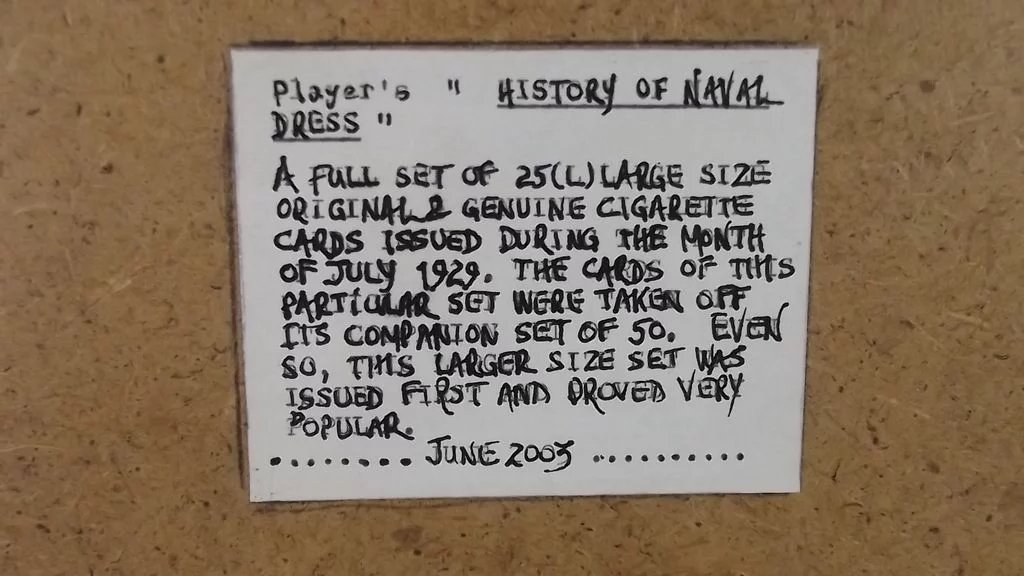 Player's " HISTORY OF NAVAL
DRESS "
A FULL SET OF 25(L) LARGE SIZE
ORIGINAL & GENUINE CIGARETTE
CARDS ISSUED DURING THE MONTH
OF JULY 1929. THE CARDS OF THIS
PARTICULAR SET WERE TAKEN OFF
ITS COMPANION SET OF 50. EVEN
SO, THIS LARGER SIZE SET WAS
ISSUED FIRST AND PROVED VERY
POPULAR.
........ JUNE 2003 ..........